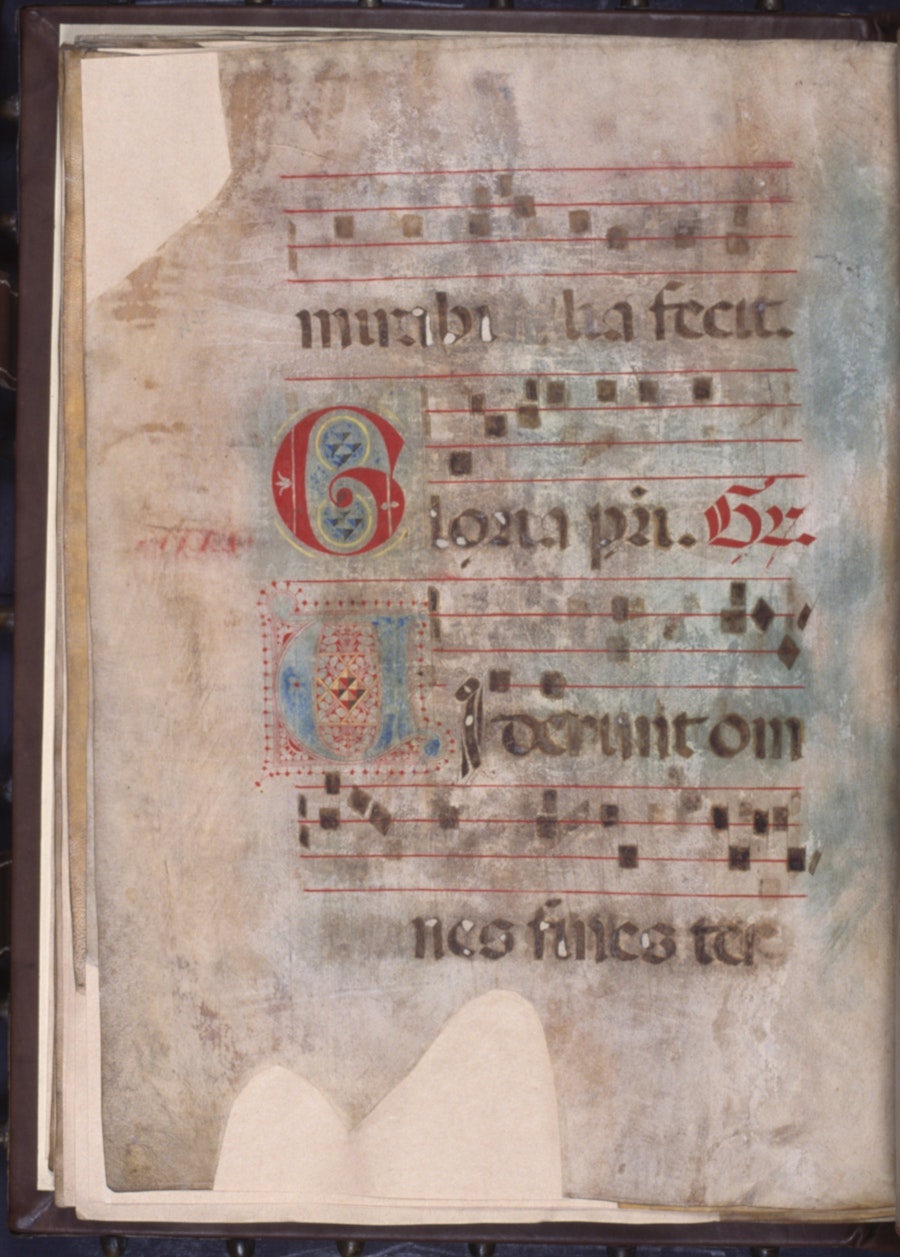 mirabi lia fecit.
Gloria pri. Gr.
Viderunt om
nes fines ter